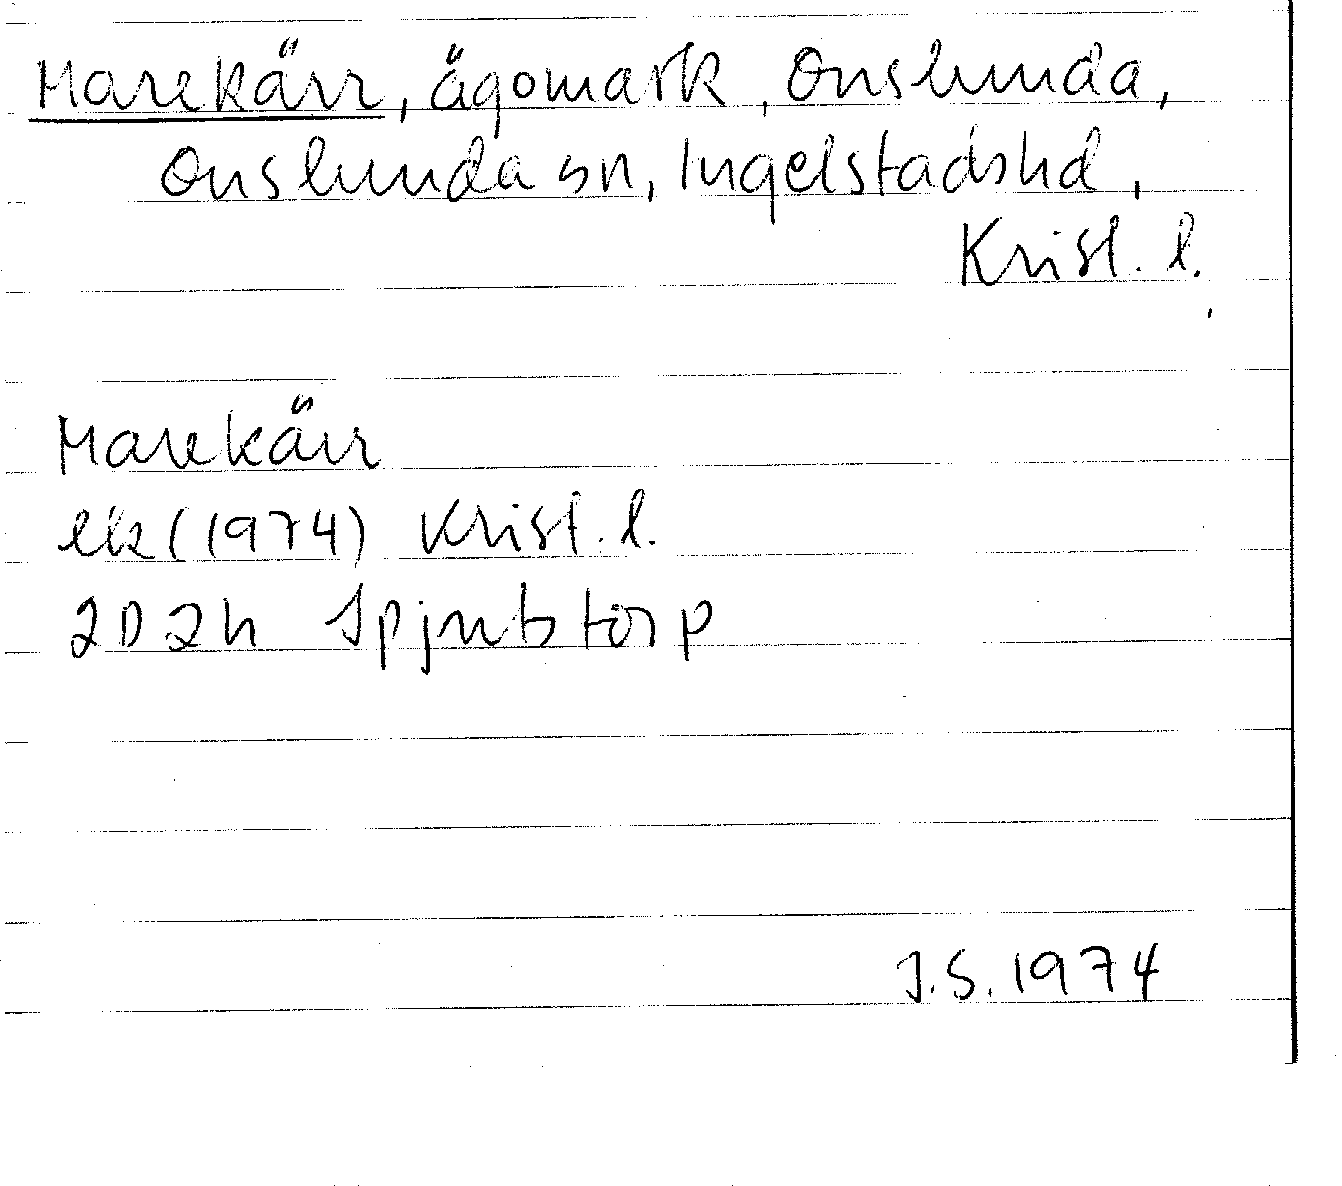 Marekärr, ägomark, Onslunda,
Onslunda sn, Ingelstads hd,
Krist. l.
Marekärr
ek (1974) Krist. l.
2D2h Spjutstorp
J.S. 1974